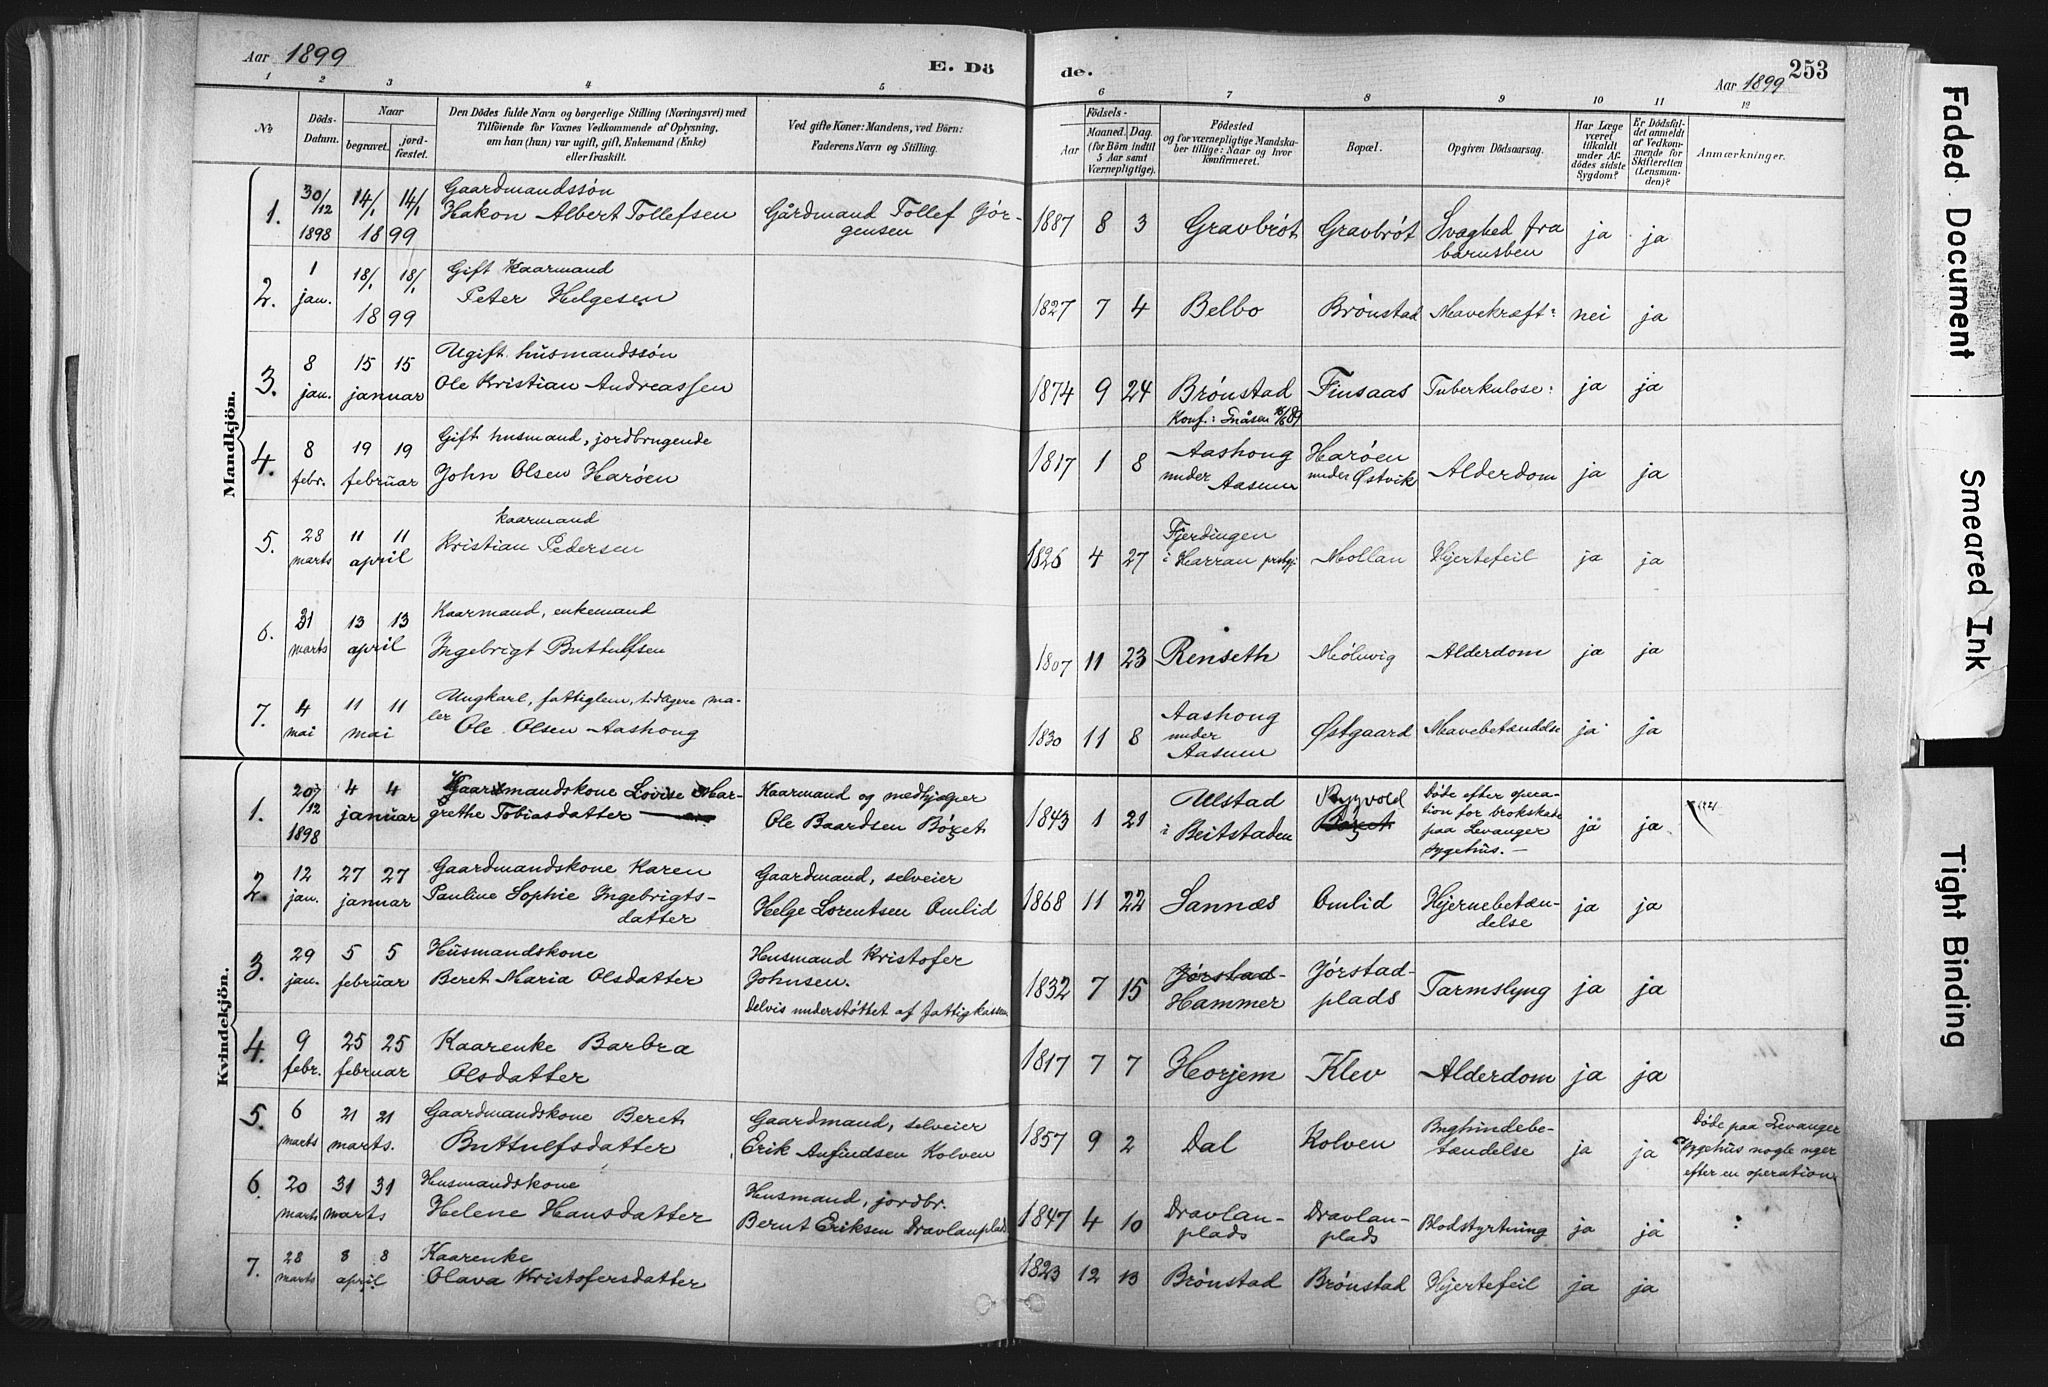 Aar 1899
E. Dö
de.
Aar 1899
253
1 2 3 4 5 6 7 8 9 10 11 12
No
Döds-
Datum.
Naar
begravet.
jord-
fæstet.
Den Dödes fulde Navn og borgerlige Stilling (Næringsvei) med
Tilföiende for Voxnes Vedkommende af Oplysning,
om han (hun) var ugift, gift, Enkemand (Enke)
eller fraskilt.
Ved gifte Koner: Mandens, ved Börn:
Faderens Navn og Stilling.
Födsels-
Aar
Maaned. Dag.
(for Börn indtil
5 Aar samt
Værnepligtige).
Födested
og for værnepligtige Mandska-
ber tillige: Naar og hvor
konfirmeret.
Bopæl.
Opgiven Dödsaarsag.
Har Læge
været
tilkaldt
under Af-
dödes sidste
Sygdom?
Er Dödsfal-
det anmeldt
af Vedkom-
mende for
Skifteretten
(Lensman-
den)?
Anmærkninger.
Mandkjön.
1. 30/12 1898 14/1 14/1 1899
Gaardmandssön
Hakon Albert Tollefsen
Gårdmand Tollef Jör-
gensen
1887 8 3 Gravbröt Gravbröt Svaghed fra
barnsben
ja ja
2. 1 jan. 18/1 18/1 1899
Gift kaarmand
Peter Helgesen
1827 7 4 Belbo Brönstad Mavekræft: nei ja
3. 8 jan. 15 15 januar
Ugift husmandssön
Ole Kristian Andreassen
1874 9 24 Brönstad
Konf.: Snåsen
Finsaas Tuberkulose: ja ja
4. 8 febr. 19 19 februar
Gift husmand, jordbrugende
John Olsen Haröen
1817 1 8 Aashong
under Aasum
Haröen
under Østvik
Alderdom ja ja
5. 28 marts 11 11 april
kaarmand
Kristian Pedersen
1826 4 27 Fjerdingen
i Harran prstgj.
Mollan Hjertefeil ja ja
6. 31 marts 13 13 april
Kaarmand, enkemand
Ingebrigt Buttulfsen
1807 11 23 Renseth Mölnvig Alderdom ja ja
7. 4 mai 11 11 mai
Ungkarl, fattiglem, tidligere ma-
ler Ole Olsen Aashong
1830 11 8 Aashong
under
Aasum
Østgaard Mavebetændelse ja ja
Kvindekjön.
1. 20/12 1898 4 4 januar
Kaarmandskone Lovise Mar-
grethe Tobiasdatter
Kaarmand og medhjælper
Ole Baardsen
1843 1 21 Ulstad
i Beitstaden
Döde efter opera-
tion for brokskade
paa Levanger
sygehus. –
ja ja
2. 12 jan. 27 27 januar
Gaardmandskone Karen
Pauline Sophie Ingebrigts-
datter
Gaardmand, selveier
Helge Lorentsen Omlid
1868 11 22 Sannæs Omlid Hjernebetæn-
delse
ja ja
3. 29 jan. 5 5 februar
Husmandskone
Beret Maria Olsdatter
Husmand Kristofer
Johnsen.
Delvis understöttet af fattigkassen
1832 7 15 Jörstad-
Hammer
Jörstad-
plads
Tarmslyng ja ja
4. 9 febr. 25 25 februar
Kaarenke Barbra
Olsdatter
1817 7 7 Horjem Klev Alderdom ja ja
5. 6 marts 21 21 marts.
Gaardmandskone Beret
Buttulfsdatter
Gaardmand, selveier
Erik Anfindsen Kolven
1857 9 2 Dal Kolven Bughindebe-
tændelse
ja ja
Döde paa Levanger
sygehus nogle uger
efter en operation
6. 20 marts 31 31 marts
Husmandskone
Helene Hansdatter
Husmand, jordbr.
Bernt Eriksen Dravlanplads
1847 4 10 Dravlan-
plads
Dravlan-
plads
Blodstyrtning ja ja
7. 28 marts 8 8 april
Kaarenke
Olava Kristofersdatter
1823 12 13 Brönstad Brönstad Hjertefeil ja ja
Faded Document
Smeared Ink
Tight Binding